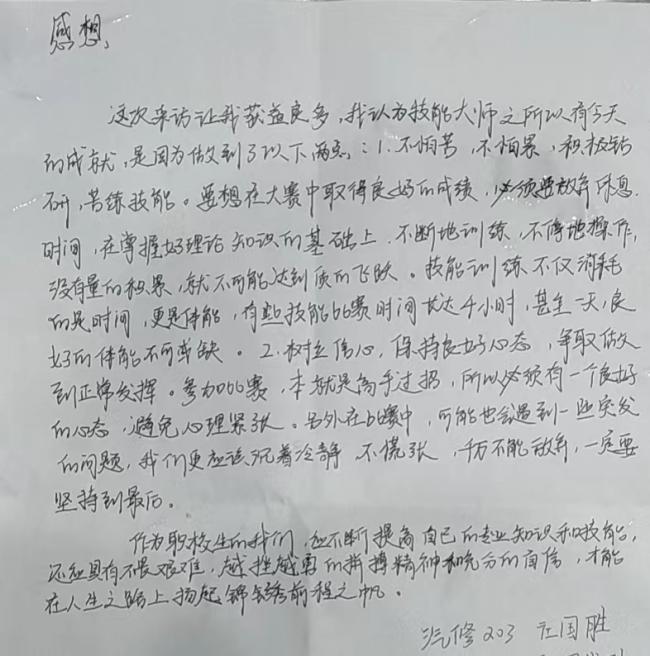 感想
这次采访让我获益良多，我认为技能大师之所以有今天
的成就，是因为做到了以下两点：1.不怕苦，不怕累，积极钻
研，苦练技能。要想在大赛中取得良好的成绩，必须要放弃休息
时间，在掌握好理论知识的基础上，不断地训练，不停地操作，
没有量的积累，就不可能达到质的飞跃。技能训练不仅消耗
的是时间，更是体能，有些技能比赛时间长达4小时，甚至一天，良
好的体能不可或缺。2.树立信心，保持良好心态，争取做
到正常发挥。参加比赛，本就是高手过招，所以必须有一个良好
的心态，避免心理紧张。另外在比赛中，可能也会遇到一些突发
的问题，我们更应该沉着冷静，不慌张，千万不能放弃，一定要
坚持到最后。
作为职校生的我们，应不断提高自己的专业知识和技能，
还应具有不畏艰难，越挫越勇的拼搏精神和充分的自信，才能
在人生之路上扬起锦绣前程之帆。
汽修203 江国胜